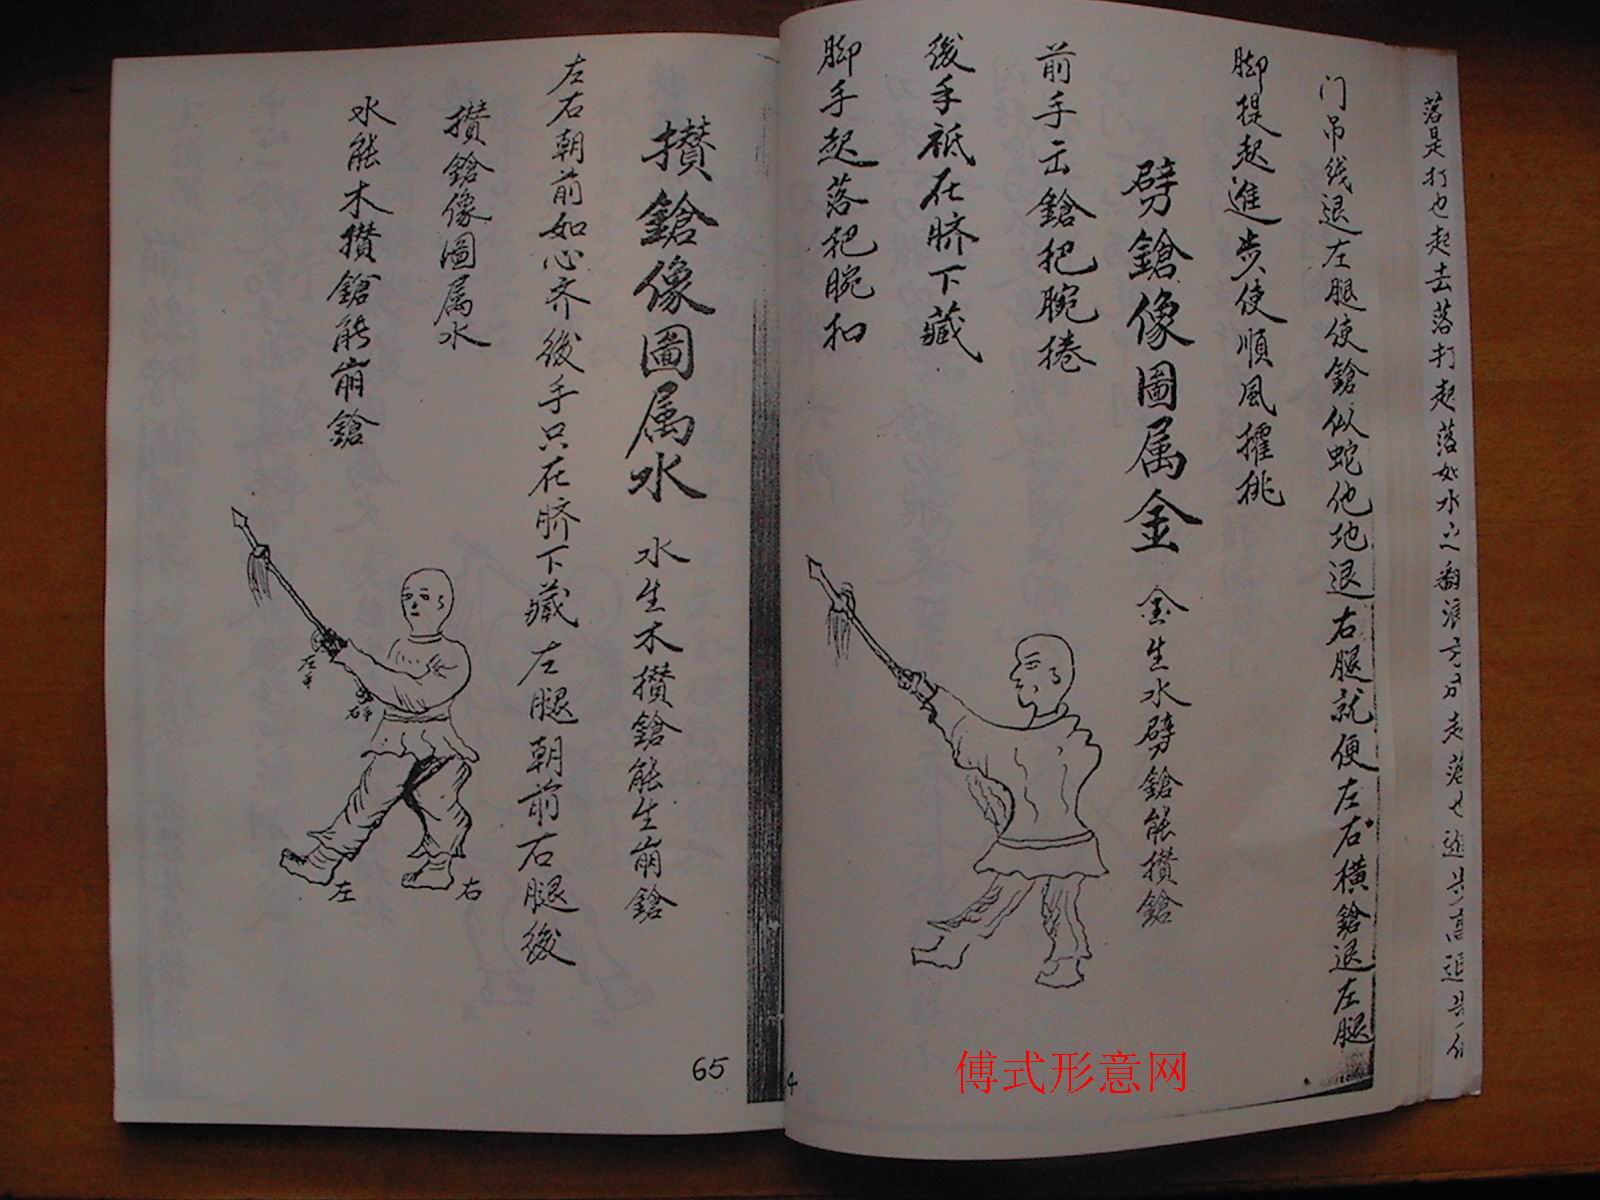 落是打也起去落打起落如水之翻浪方分起落也進步高退步
门吊线退左腿使鎗似蛇他地退右腿就便左右橫鎗退左腿
脚提起進步使順風擺挑
劈鎗像圖属金
金生水劈鎗能攢鎗
前手云鎗把腕捲
後手祗在脐下藏
脚手起落把腕扣
攢鎗像圖属水
水生木攢鎗能生崩鎗
左右朝前如心齐後手只在脐下藏左腿朝前右腿後
攢鎗像圖属水
水能木攢鎗能崩鎗
左手
右手
左
右
65
4
傅式形意网